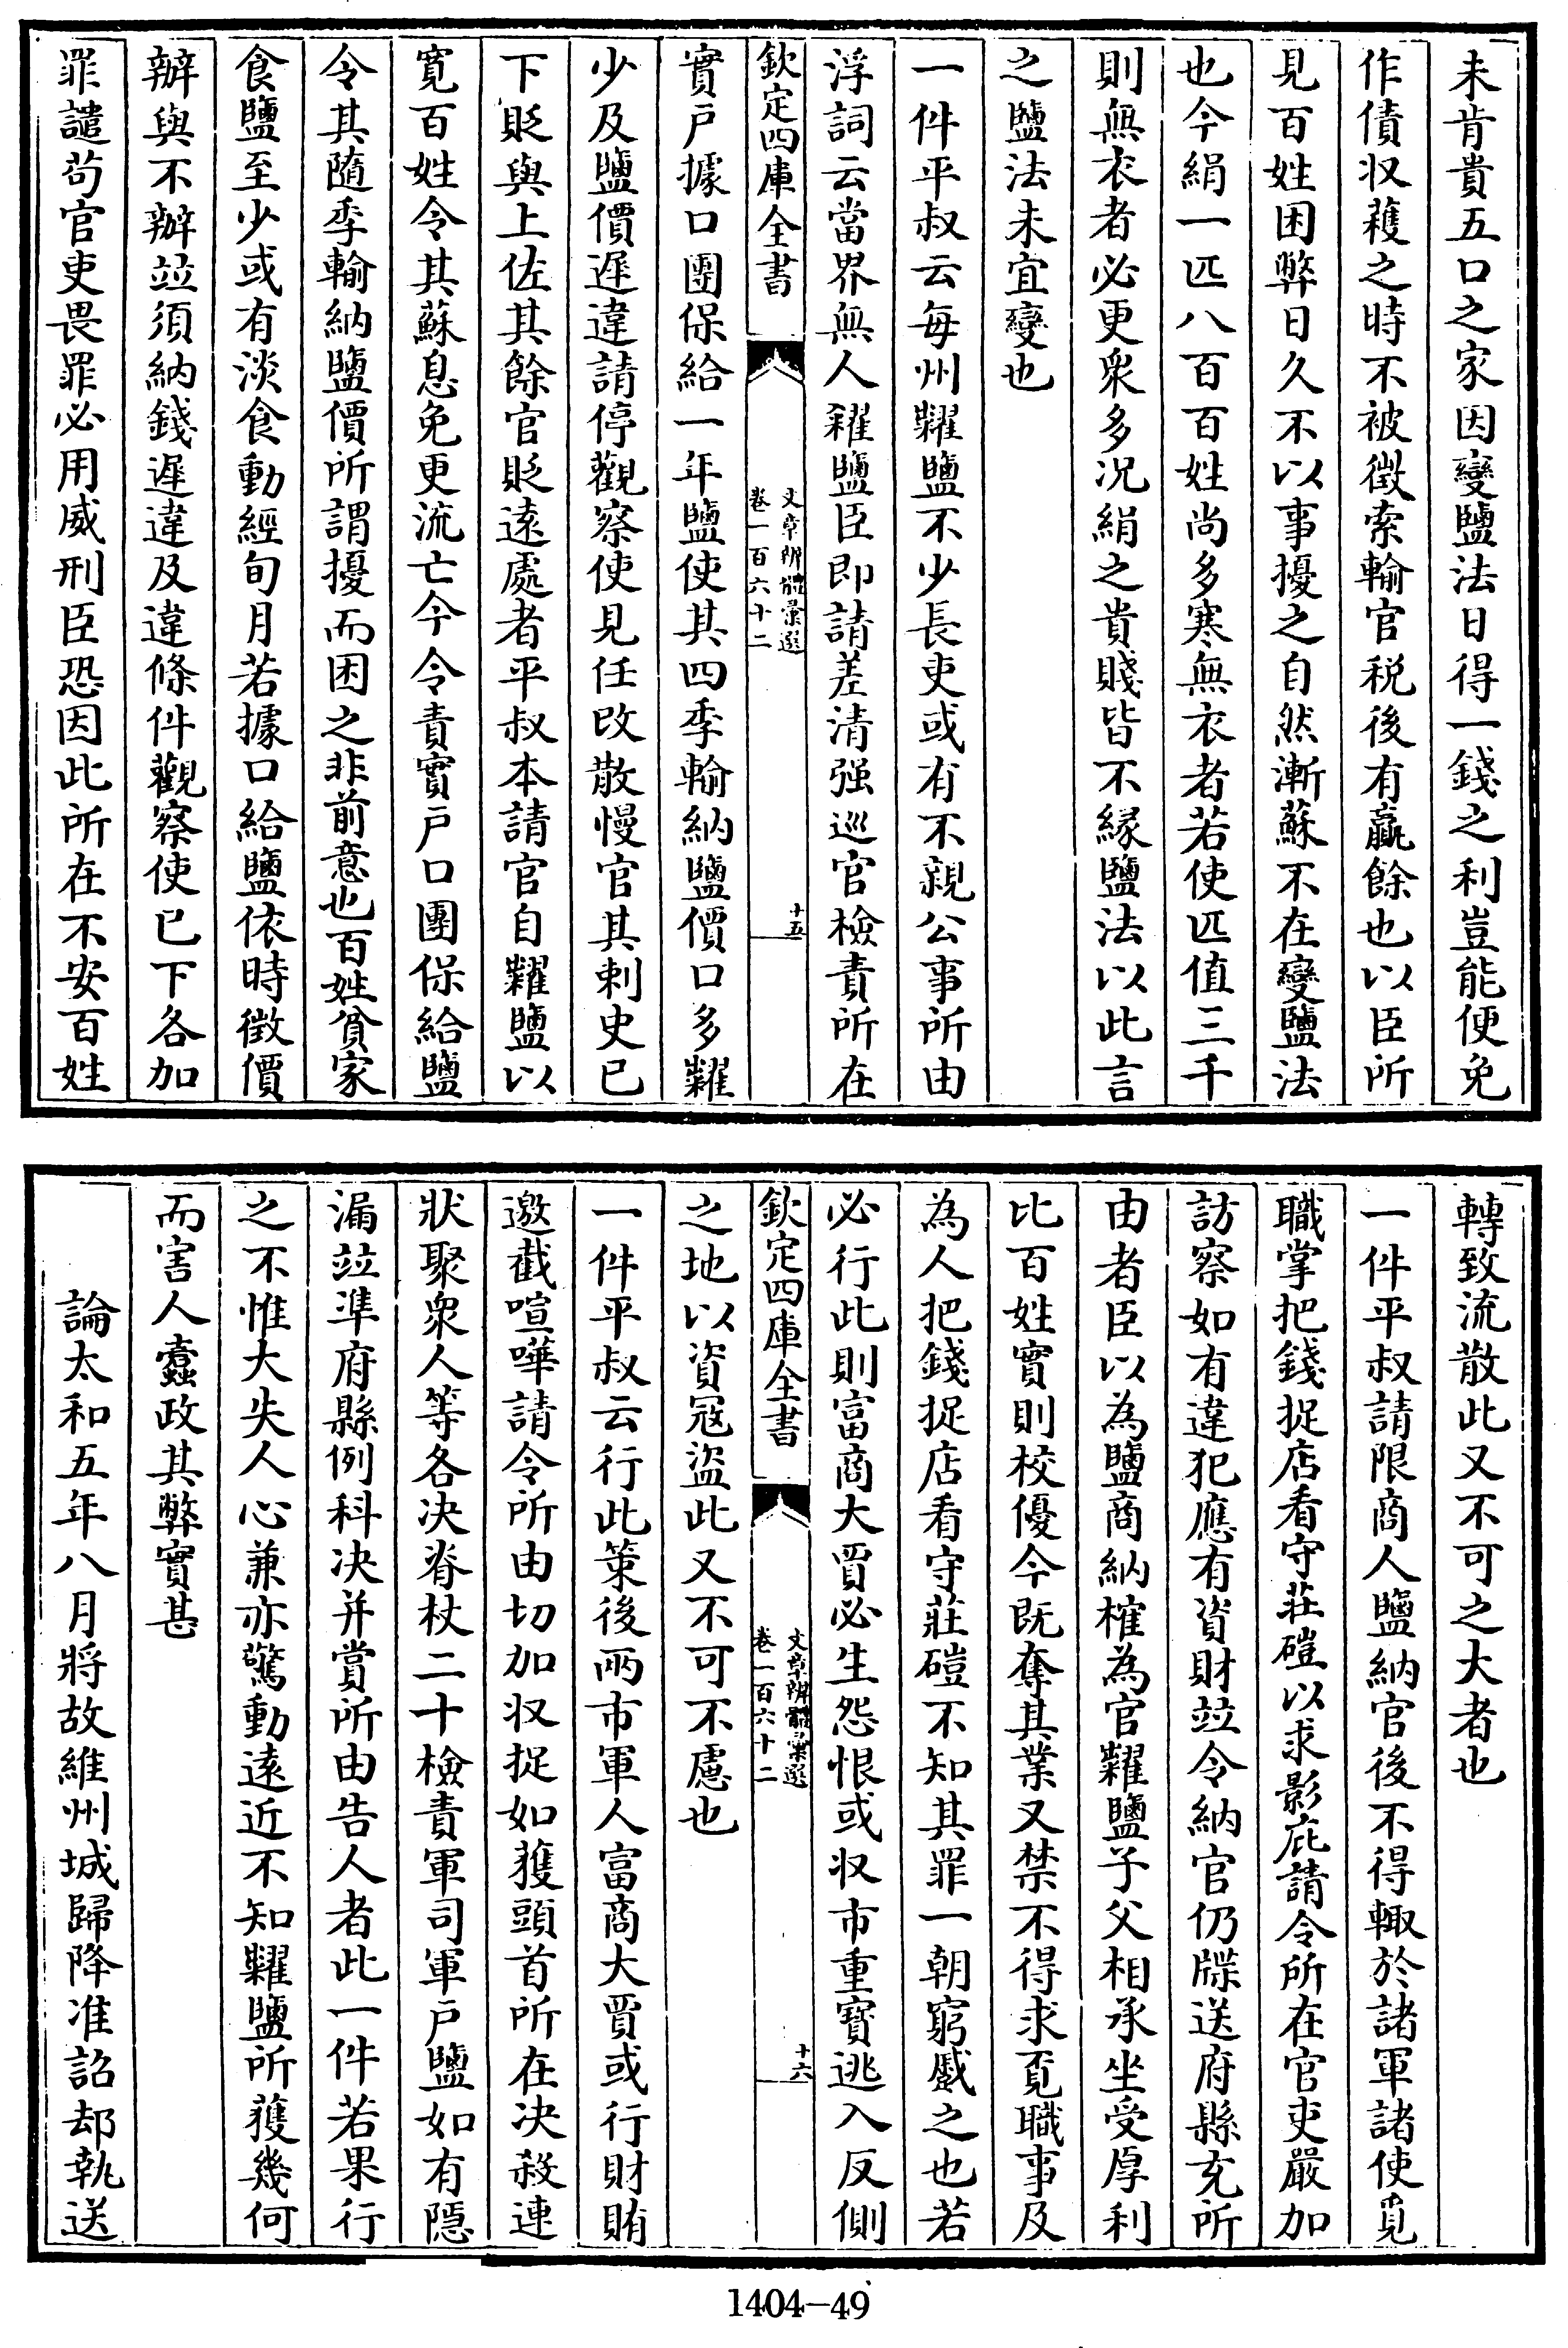 未肯貴五口之家因變鹽法日得一錢之利豈能便免
作債収穫之時不被徴索輸官税後有贏餘也以臣所
見百姓困弊日久不以事擾之自然漸蘇不在變鹽法
也今絹一匹八百百姓尚多寒無衣者若使匹值三千
則無衣者必更衆多况絹之貴賤皆不緣鹽法以此言
之鹽法未宜變也
一件平叔云每州糶鹽不少長吏或有不親公事所由
浮詞云當界無人糴鹽臣即請差清强巡官檢責所在
欽定四庫全書
文章辨體彚選
卷一百六十二
十五
實戶據口團保給一年鹽使其四季輸納鹽價口多糶
少及鹽價遲違請停觀察使見任改散慢官其刺史已
下貶與上佐其餘官貶遠處者平叔本請官自糶鹽以
寬百姓令其蘇息免更流亡今令責實戶口團保給鹽
令其隨季輸納鹽價所謂擾而困之非前意也百姓貧家
食鹽至少或有淡食動經旬月若據口給鹽依時徵價
辦與不辦竝須納錢遲違及違條件觀察使已下各加
罪譴苟官吏畏罪必用威刑臣恐因此所在不安百姓
轉致流散此又不可之大者也
一件平叔請限商人鹽納官後不得輙於諸軍諸使覓
職掌把錢捉店看守莊磑以求影庇請令所在官吏嚴加
訪察如有違犯應有資財竝令納官仍牒送府縣充所
由者臣以為鹽商納榷為官糶鹽子父相承坐受厚利
比百姓實則校優今既奪其業又禁不得求覓職事及
為人把錢捉店看守莊磑不知其罪一朝窮蹙之也若
必行此則富商大賈必生怨恨或収市重寶逃入反側
欽定四庫全書
文章辨體彚選
卷一百六十二
十六
之地以資冦盜此又不可不慮也
一件平叔云行此策後兩市軍人富商大賈或行財賄
邀截喧嘩請令所由切加収捉如獲頭首所在决殺連
狀聚衆人等各决脊杖二十檢責軍司軍戶鹽如有隱
漏竝準府縣例科决并賞所由告人者此一件若果行
之不惟大失人心兼亦驚動遠近不知糶鹽所獲幾何
而害人蠹政其弊實甚
論太和五年八月將故維州城歸降准詔却執送
1404-49